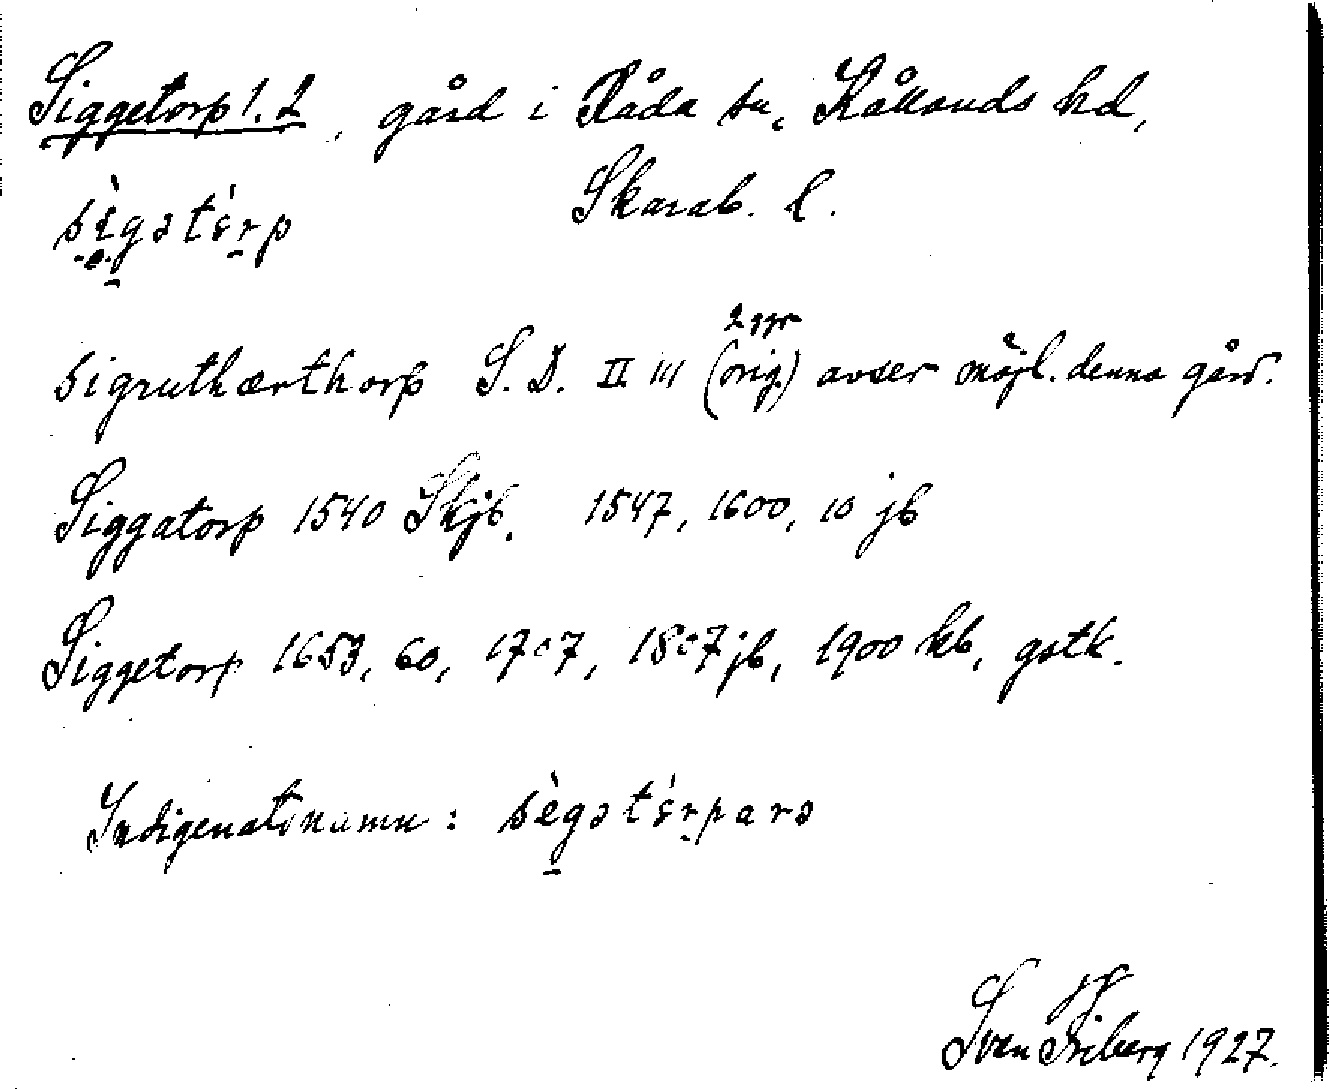 Siggetorp 1. 2, gård i Råda sn, Kållands hd,
Skarab. l.
sìgətérp
2 ggr
sigruthærthorp S. D. II 111 (orig.) avser möjl. denna gård.
Siggatorp 1540 Skjb. 1547, 1600, 10 jb
Siggetorp 1653, 60, 1707, 1807 jb, 1900 kb, gstk.
Indigenatsnamn: sègətérparə
Sven Friberg 1927.